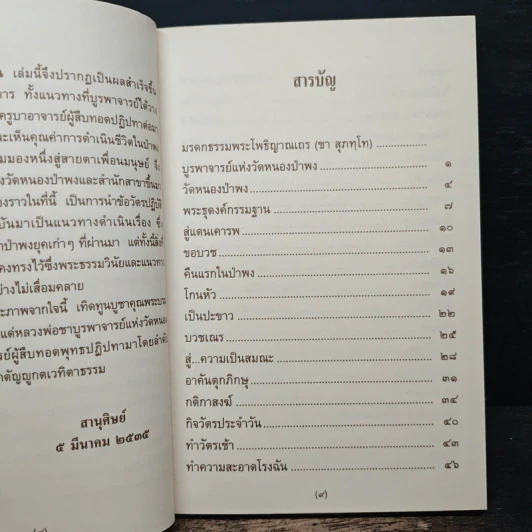 เล่มนี้จึงปรากฏเป็นผลสำเร็จขึ้น
การ ทั้งแนวทางที่บูรพาจารย์ได้วาง
ครูบาอาจารย์ผู้สืบทอดปฏิปทาต่อมา
ละเห็นคุณค่าการดำเนินชีวิตในป่าพง
มมองหนึ่งสู่สายตาเพื่อนมนุษย์ จึง
วัดหนองป่าพงและสำนักสาขาขึ้นมา
องราวในที่นี้ เป็นการนำข้อวัตรปฏิบัติ
บันมาเป็นแนวทางดำเนินเรื่อง ซึ่ง
าป่าพงยุคเก่าๆ ที่ผ่านมา แต่ทั้งนี้สิ่งที่
คงทรงไว้ซึ่งพระธรรมวินัยและแนวทาง
ย่างไม่เสื่อมคลาย
ะภาพจากใจนี้ เทิดทูนบูชาคุณพระบวน
แด่หลวงพ่อชาบูรพาจารย์แห่งวัดหนอง
รย์ผู้สืบทอดพุทธปฏิปทามาโดยลำดับ
กตัญญูกตเวทิตาธรรม
สานุศิษย์
๕ มีนาคม ๒๕๓๕
สารบัญ
มรดกธรรมพระโพธิญาณเถร (ชา สุภทฺโท)
บูรพาจารย์แห่งวัดหนองป่าพง ๑
วัดหนองป่าพง ๔
พระธุดงค์กรรมฐาน ๗
สู่แดนเคารพ ๑๐
ขอบวช ๑๓
คืนแรกในป่าพง ๑๖
โกนหัว ๑๙
เป็นปะขาว ๒๒
บวชเณร ๒๕
สู่...ความเป็นสมณะ ๒๘
อาคันตุกภิกษุ ๓๑
กติกาสงฆ์ ๓๔
กิจวัตรประจำวัน ๔๐
ทำวัตรเช้า ๔๓
ทำความสะอาดโรงฉัน ๔๖
(๙)